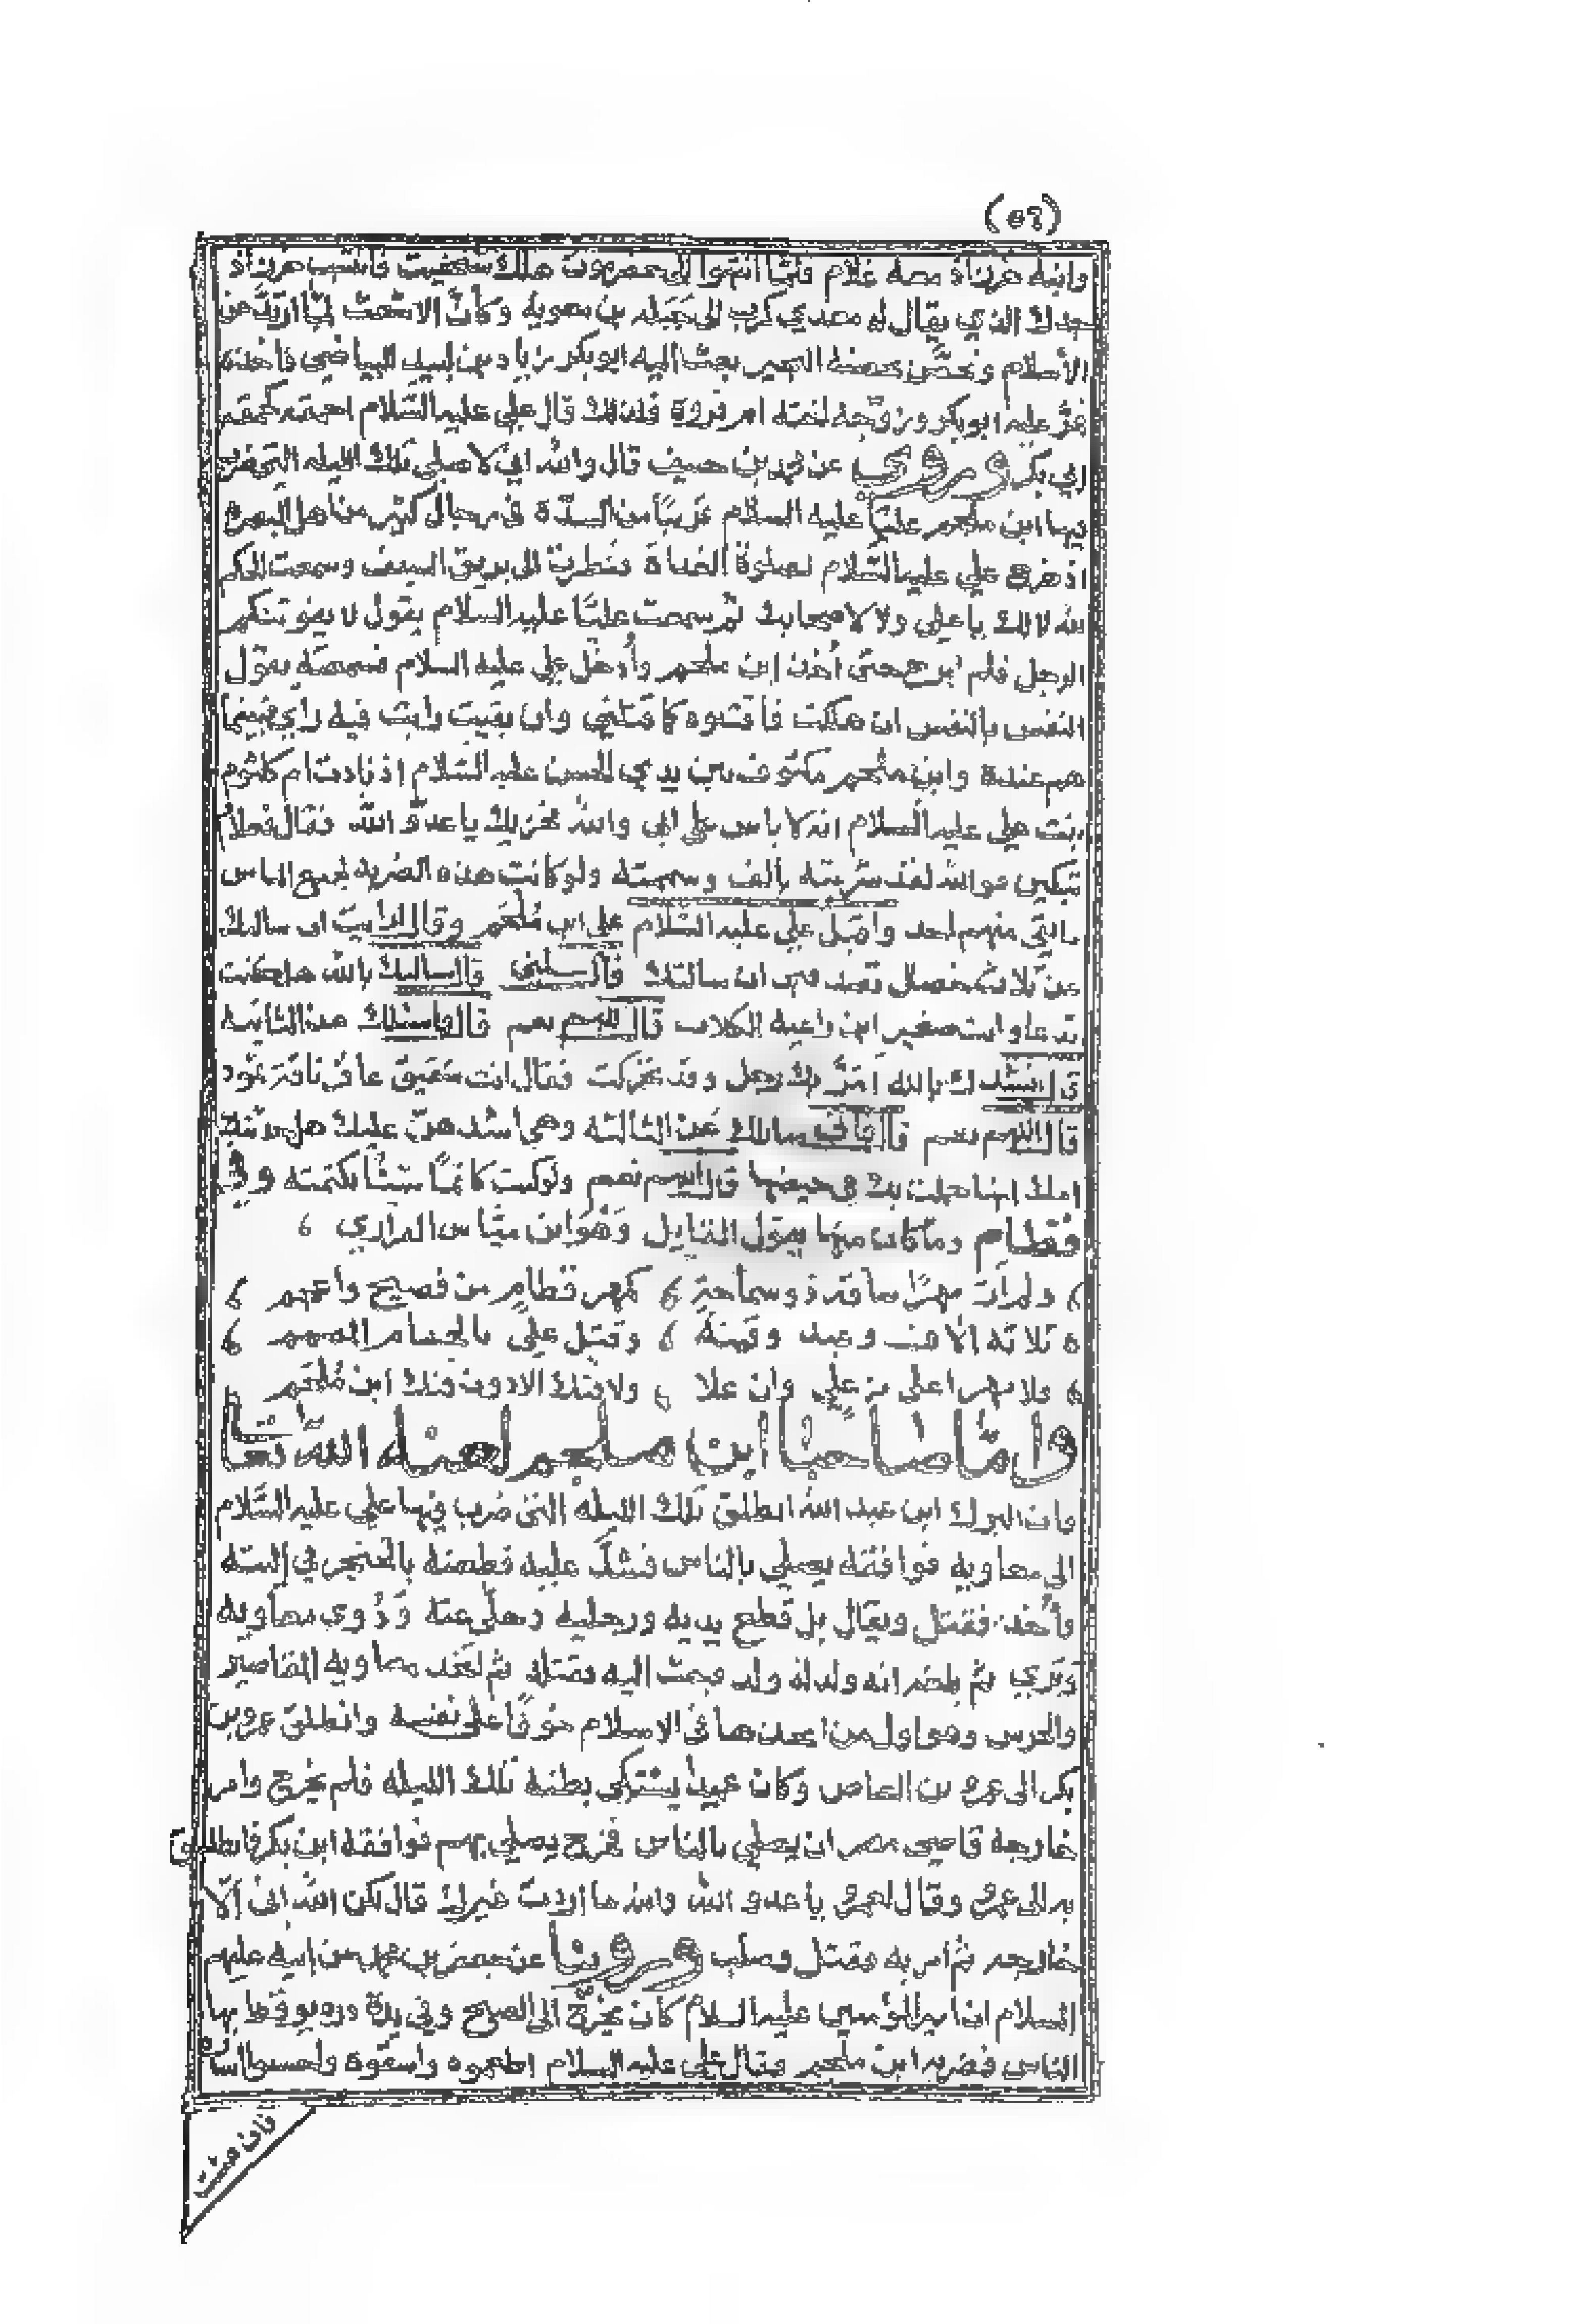 (٥٦)
وابنه خرناذ معه غلام فلما انتهوا الى حضرموت هلك سحيت وانتسب خرناذ
جدك الذي يقال له معدي كرب الى جبله بن معويه وكان الاشعث لما ارتد عن
الاسلام وتحصن بحصنه النجير بعث اليه ابو بكر زياد بن لبيد البياضي فاخذه
فمن عليه ابو بكر وزوجه اخته ام فروة فلذلك قال علي عليه السلام
ابي بكر وروي عن بن حنيف قال والله اني لاصلي تلك الليله التي ضرب
فيها ابن ملجم عليا عليه السلام قريبا من السدة في رجال كثير من اهل المصر
اذ خرج علي عليه السلام لصلوة الغداة فنظرت الى بريق السيف وسمعت الحكم
لله لا لك يا علي ولا لاصحابك ثم سمعت عليا عليه السلام يقول لا يفوتنكم
الرجل فلم ابرح حتى أخذ ابن ملجم وأدخل على علي عليه السلام فسمعته يقول
النفس بالنفس ان هلكت فاقتلوه كما قتلني وان بقيت رايت فيه راي فبينما
هم عنده وابن ملجم مكتوف بين يدي الحسن عليه السلام اذ نادت ام كلثوم
بنت علي عليه السلام انه لا باس على ابي والله مخزيك يا عدو الله فقال فعلام
تبكين فوالله لقد شريته بالف وسممته ولو كانت هذه الضربه لجميع الناس
ما بقي منهم احد واقبل علي عليه السلام على ابن ملجم وقال ارايت ان سالتك
عن ثلاث خصال تصدقني ان سالتك قال سلني قال سالتك بالله هل كنت
تدعا وانت صغير ابن راعية الكلاب قال اللهم نعم قال واسئلك عن الثانية
قال انشدك بالله امر بك رجل وقد تحركت فقال انت شقيق عاقر ناقة ثمود
قال اللهم نعم قال فاني سالك عن الثالثه وهي اشدهن عليك هل حدثتك
امك انها حملت بك في حيضها قال اللهم نعم ولو كنت كاتما شيئا لكتمته وفي
قطام وما كان منها يقول القايل وهو ابن مياس المرادي
ولم ار مهرا ساقه ذو سماحة كمهر قطام من فصيح واعجم
ثلاثه الاف وعبد وقينة وقتل علي بالحسام المصمم
ولا مهر اعلى من علي وان علا ولا فتك الا دون فتك ابن ملجم
واما صاحبا ابن ملجم لعنه الله تعا
فان البرك ابن عبد الله انطلق تلك الليله التي ضرب فيها علي عليه السلام
الى معاويه فوافقه يصلي بالناس فشد عليه فطعنه بالخنجر في إليته
وأخذ فقتل ويقال بل قطع يديه ورجليه وخلى عنه ودووي معاويه
وبري ثم بلغه انه ولد له ولد فبعث اليه فقتله ثم اتخذ معاويه المقاصير
والحرس وهو اول من اتخذهما في الاسلام خوفا على نفسه وانطلق عمرو بن
بكر الى عمرو بن العاص وكان عمرو يشتكي بطنه تلك الليله فلم يخرج وامر
خارجه قاضي مصر ان يصلي بالناس فخرج يصلي بهم فوافقه ابن بكر فانطلق
به الى عمرو وقال لعمرو يا عدو الله والله ما اردت غيرك قال لكن الله ابى الا
خارجه ثم امر به فقتل وصلب وروينا عن جعفر بن محمد عن ابيه عليهم
السلام ان امير المؤمنين عليه السلام كان يخرج الى الصبح وفي يده دره يوقظ بها
الناس فضربه ابن ملجم فقال علي عليه السلام اطعموه واسقوه واحسنوا اساره
فان عشت